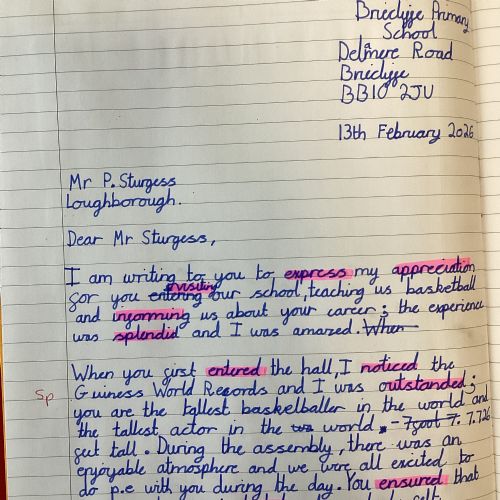 Briercliffe Primary
School
Delmere Road
Briercliffe
BB10 2JU
13th February 2026
Mr P. Sturgess
Loughborough.
Dear Mr Sturgess,
I am writing to you to express my appreciation
visiting
for you entering our school, teaching us basketball
and informing us about your career; the experience
was splendid and I was amazed. When
When you first entered the hall, I noticed the
Sp
Guiness World Records and I was outstanded;
you are the tallest basketballer in the world and
the tallest actor in the world - 7foot 7. 7.726
feet tall. During the assembly, there was an
enjoyable atmosphere and we were all excited to
do p.e with you during the day. You ensured that
felt